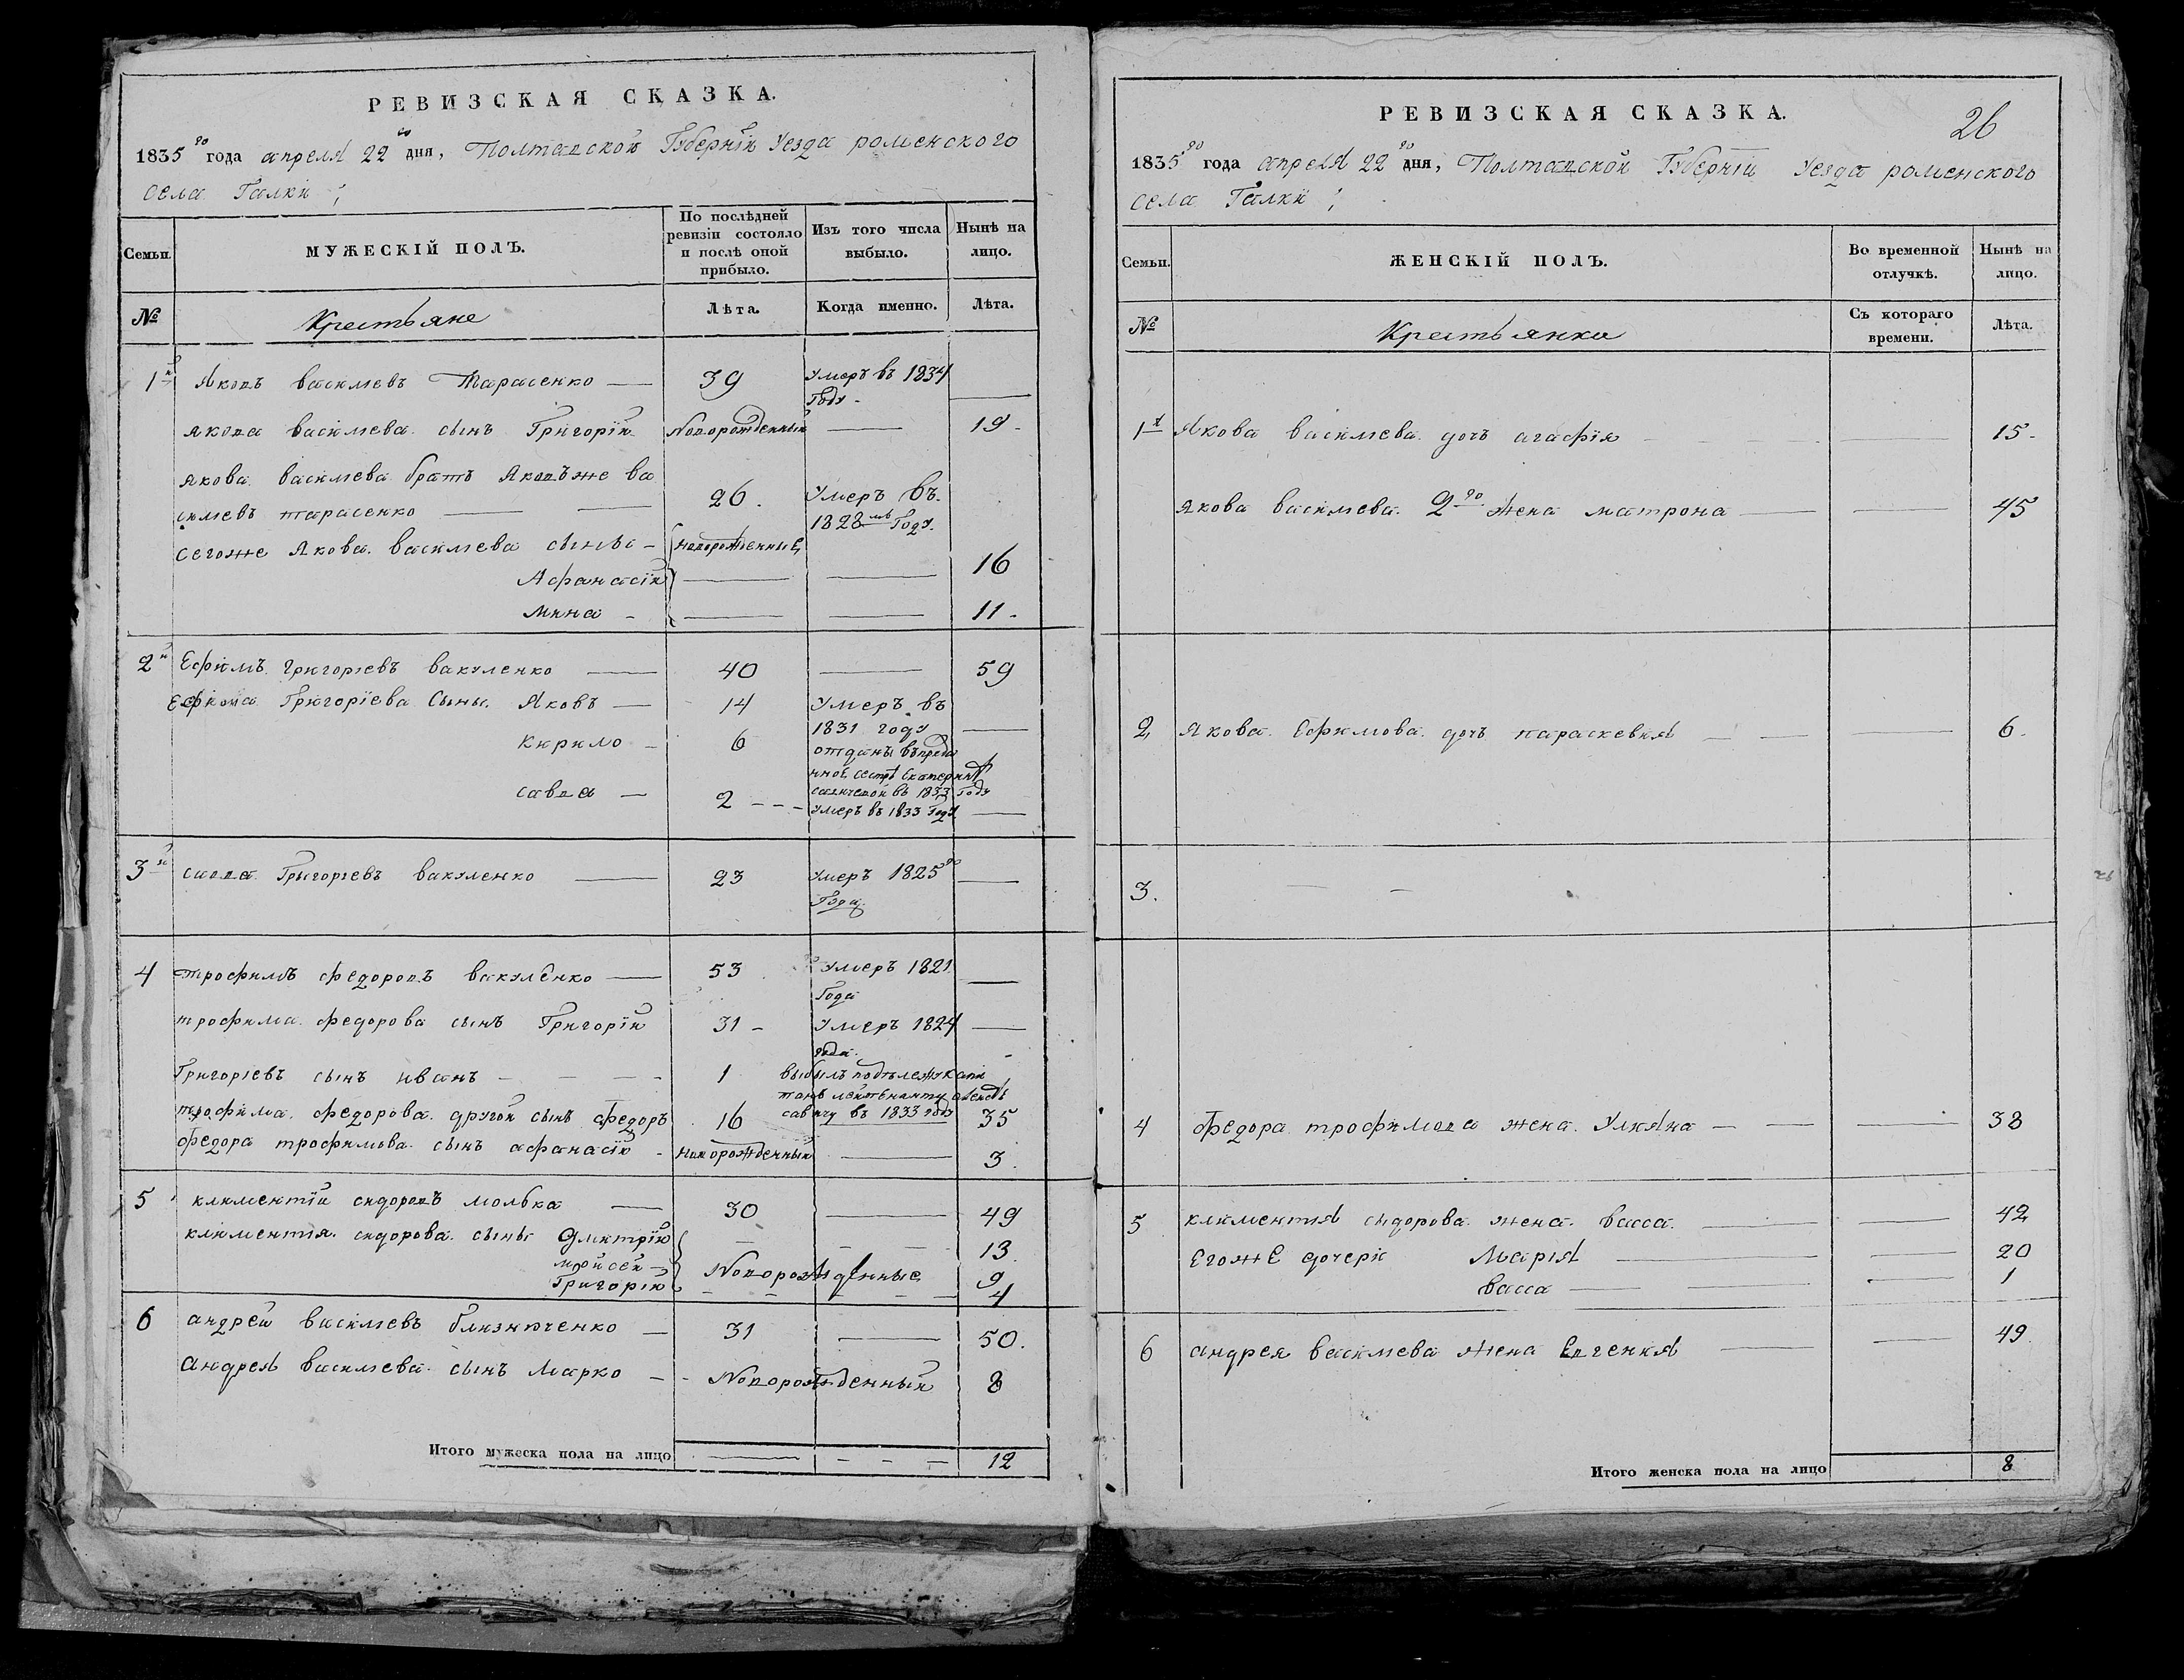 РЕВИЗСКАЯ СКАЗКА.
1835го года апреля 22го дня, Полтавской Губернїи Уезда роменского
села Галки;
Семьи.
МУЖЕСКІЙ ПОЛЪ.
По послѣдней ревизіи состояло и послѣ оной прибыло.
Изъ того числа выбыло.
Нынѣ на лицо.
№
Крестьяне
Лѣта.
Когда именно.
Лѣта.
1й Яковъ васильевъ Тарасенко — 39 Умеръ въ 1834 —
Году -
Якова васильева сынъ Григорїй Новорожденный — 19.
якова васильева братъ Яковъже ва
сильевъ тарасенко — — 26. Умеръ въ
1828мъ Году.
сегоже Якова васильева сыны - Новорожденные
Афанасїй — — 16
мина - — — 11.
2й Ефимъ григорїевъ вакуленко — 40 — 59
Ефима Григорїева Сыны Яковъ — 14 Умеръ въ
1831 году —
Кирило - 6 отданы въприда
нное сестре Екатерине
савва — 2 - - - в 1833 Году
умеръ въ 1833 Году —
3й савва Григорїевъ вакуленко — 23 умеръ 1825го —
Года.
4 трофимъ федоровъ вакуленко — 53 Умеръ 1821 —
Года
трофима федорова сынъ Григорїй 31 - Умеръ 1824 —
года.
Григорїевъ сынъ иванъ - - - - 1 выбылъ
савичу въ 1833 году
трофима федорова другой сынъ федоръ 16 35
федора трофимова сынъ афанасїй - новорожденный — 3.
5 климентїй сидоровъ молька — 30 — 49
климентїя сидорова сыны Дмитрїй - - - 13
мойсей - Новорожденные 9
Григорїй - - - - 4
6 андрей васильевъ близнюченко — 31 — 50.
Андрея васильева сынъ Марко - - Новорожденный 8
Итого мужеска пола на лицо — - - - 12
РЕВИЗСКАЯ СКАЗКА.
26
1835го года апреля 22го дня, Полтавской Губернїи Уезда роменского
села Галки;
Семьи.
ЖЕНСКІЙ ПОЛЪ.
Во временной отлучкѣ.
Нынѣ на лицо.
№
Крестьянки
Съ котораго времени.
Лѣта.
1я Якова васильева дочъ агафїя - - — 15.
якова васильева 2го жена матрона — — 45
2 якова Ефимова дочъ параскевия — — — 6.
3. — —
4 федора трофимова жена Улияна — — — 38
5 климентия сидорова жена васса. — — 42
Егоже дочери Марїя — — 20
васса — — — 1
6 андрея васильева жена Евгения — — 49
Итого женска пола на лицо 8